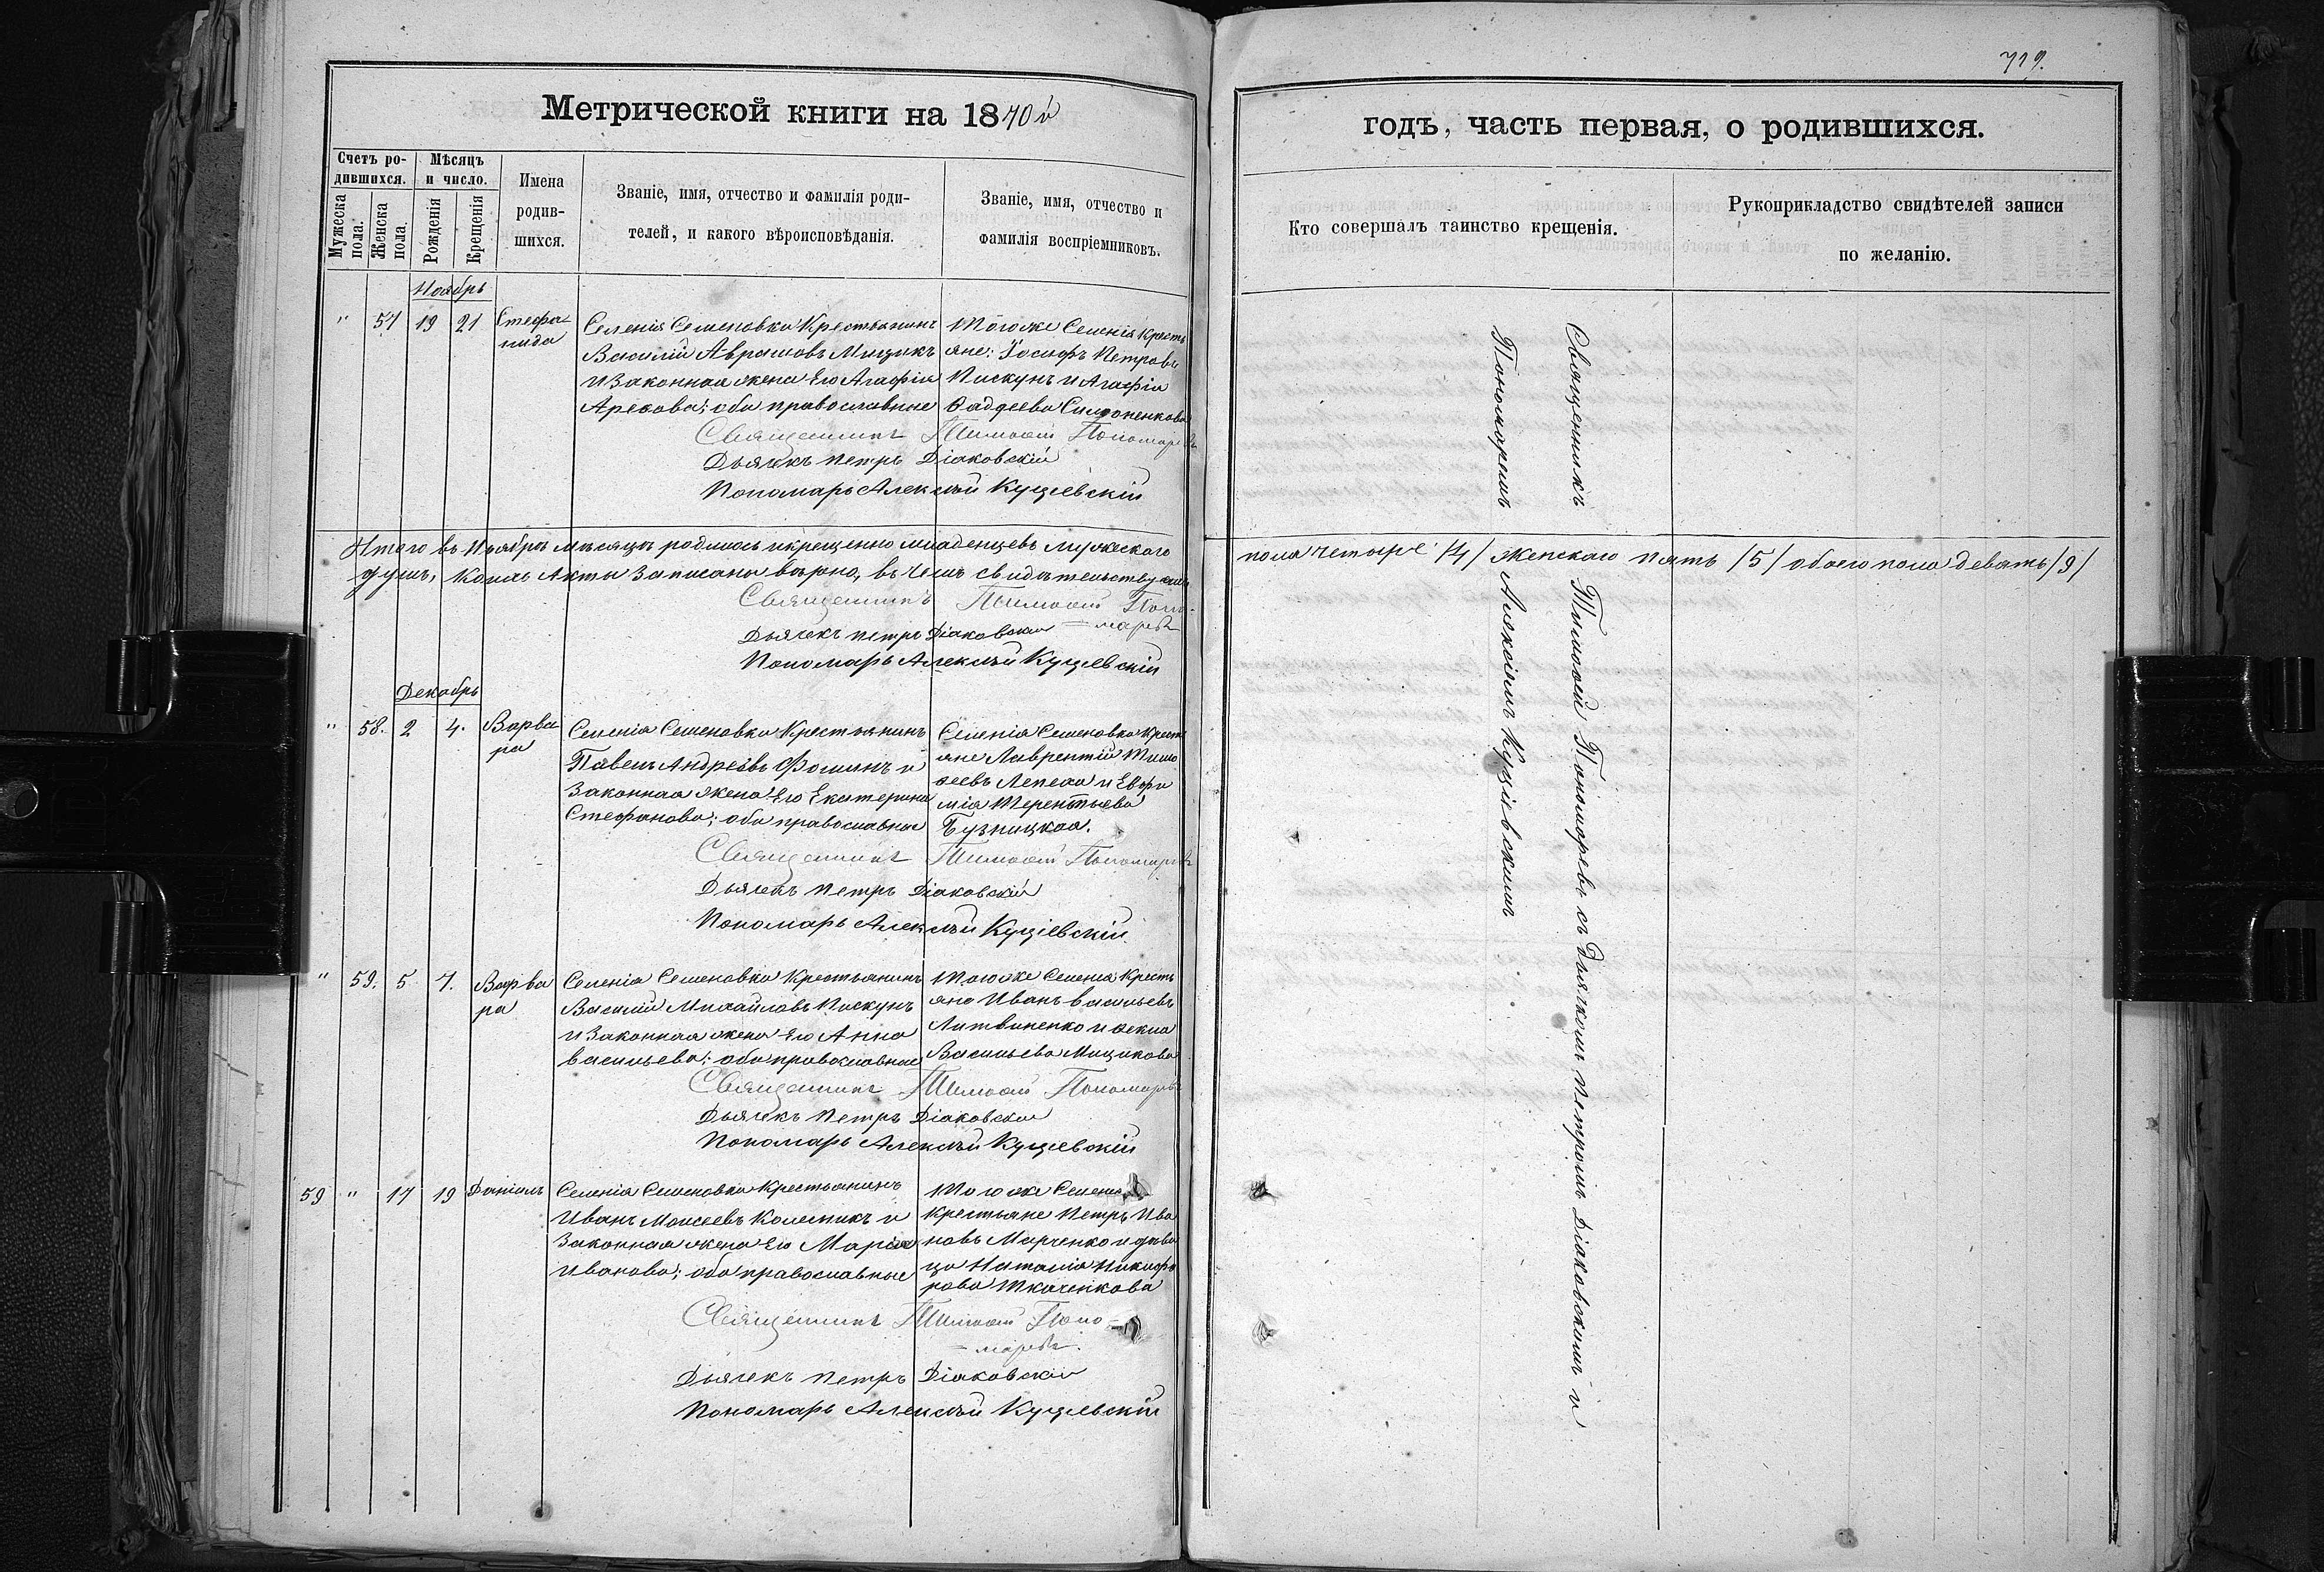 719.
Метрической книги на 1870й
годъ, часть первая, о родившихся.
Счетъ ро-
дившихся.
Мѣсяцъ
и число.
Мужеска
пола.
Женска
пола.
Рожденія
Крещенія
Имена
родив-
шихся.
Званіе, имя, отчество и фамилія роди-
телей, и какого вѣроисповѣданія.
Званіе, имя, отчество и
фамилія воспріемниковъ.
Кто совершалъ таинство крещенія.
Рукоприкладство свидѣтелей записи
по желанію.
Ноябрь
" 57 19 21
Стефа-
нида
Селенія Семеновки Крестьянинъ
Василій Аврамовъ Мицикъ
и Законная жена Его Агафія
Арефова; оба православные
Тогоже Селенія Кресть
яне: Іосифъ Петровъ
Пискунъ и Агафія
Фаддеева
Священникъ Тимофей Пономаревъ
Дьячекъ Петръ Діаковскій
Пономарь Алексѣй Кущевскій
Итого въ Ноябрѣ мѣсяцѣ родилось и крещенно младенцевъ мужескаго
пола четыре /4/ женскаго пять /5/ обоего пола девять /9/
душъ, Коихъ Акты Записаны вѣрно, въ чемъ свидѣтельствуемъ
Священникъ Тимофей Поно-
=маревъ
Дьячекъ Петръ Діаковскій
Пономарь Алексѣй Кущевскій
Декабрь
" 58. 2 4.
Варва
ра
Селенія Семеновки Крестьянинъ
Павелъ Андреевъ Фоминъ и
Законная жена Его Екатерина
Стефанова; оба православные
Селенія Семеновки Кресть
яне Лаврентій Тимо
феевъ Лепеха и Евфи
мія Терентьева
Священникъ Тимофей Пономаревъ
Дьячекъ Петръ Діаковскій
Пономарь Алексѣй Кущевскій
" 59. 5 7.
Варва
ра
Селенія Семеновки Крестьянинъ
Василій Михайловъ Пискунъ
и Законная жена Его Анна
Васильева; оба православные
Тогоже Селенія Кресть
яне Иванъ Васильевъ
Литвиненко и Фекла
Васильева Мицикова
Священникъ Тимофей Пономаревъ
Дьячекъ Петръ Діаковскій
Пономарь Алексѣй Кущевскій
59 " 17 19
Даніилъ
Селенія Семеновки Крестьянинъ
Иванъ Моисеевъ Колесникъ и
Законная жена Его Марія
Иванова; оба православные
Тогоже Селенія
Крестьяне Петръ Ива
новъ Марченко и дѣви
ца Наталія Никифо
рова Ткаченкова
Священникъ Тимофей Поно=
=маревъ.
Дьячекъ Петръ Діаковскій
Пономарь Алексѣй Кущевскій
Священникъ Тимофей Пономаревъ съ Дьячкомъ Петромъ Діаковскимъ и
Пономаремъ Алексѣемъ Кущевскимъ